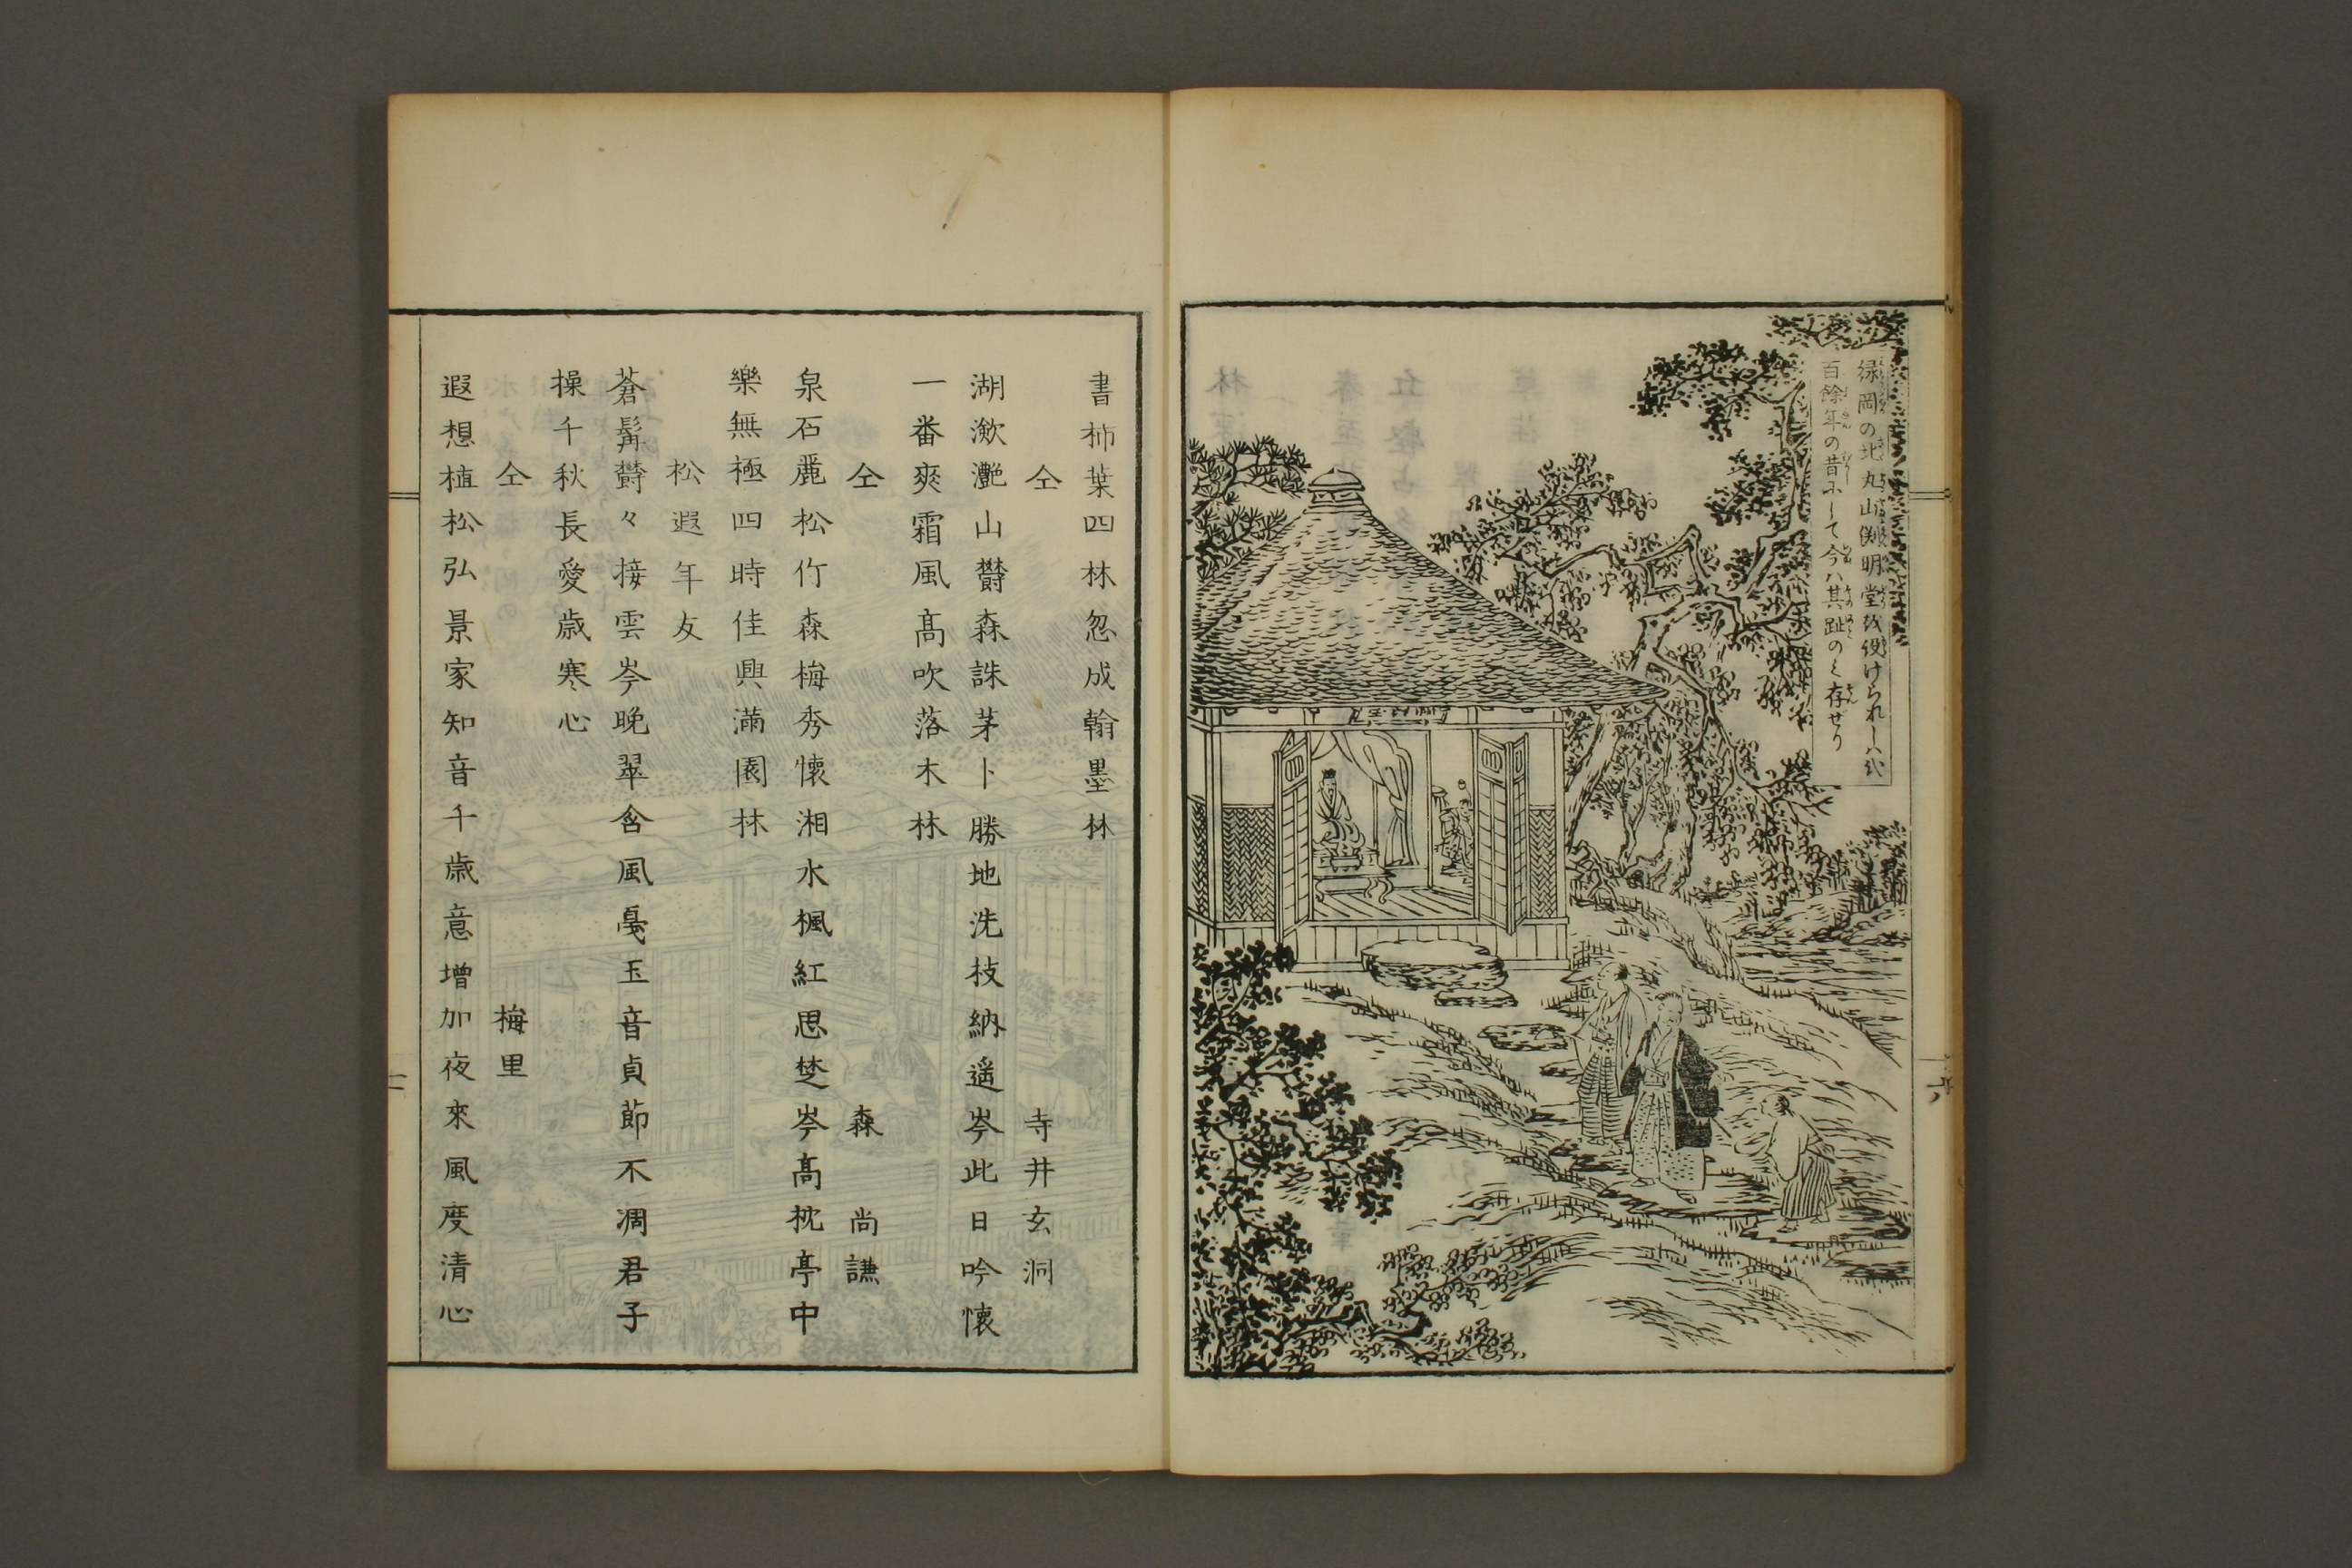 緑岡の北丸山淵明堂を設けられしハ弐
百餘年の昔にして今ハ其趾のミ存せり
六
書柿葉四林忽成翰墨林
仝　寺井玄洞
湖瀲灧山欝森誅茅卜勝地洗枝納遥岑此日吟懐
一番爽霜風髙吹落木林
仝　森尚謙
泉石麗松竹森梅秀懐湘水楓紅思楚岑髙枕亭中
樂無極四時佳興滿園林
松遐年友
蒼髯欝々接雲岑晩翠含風戞玉音貞節不凋君子
操千秋長愛歳寒心
仝　梅里
遐想植松弘景家知音千歳意增加夜來風度清心